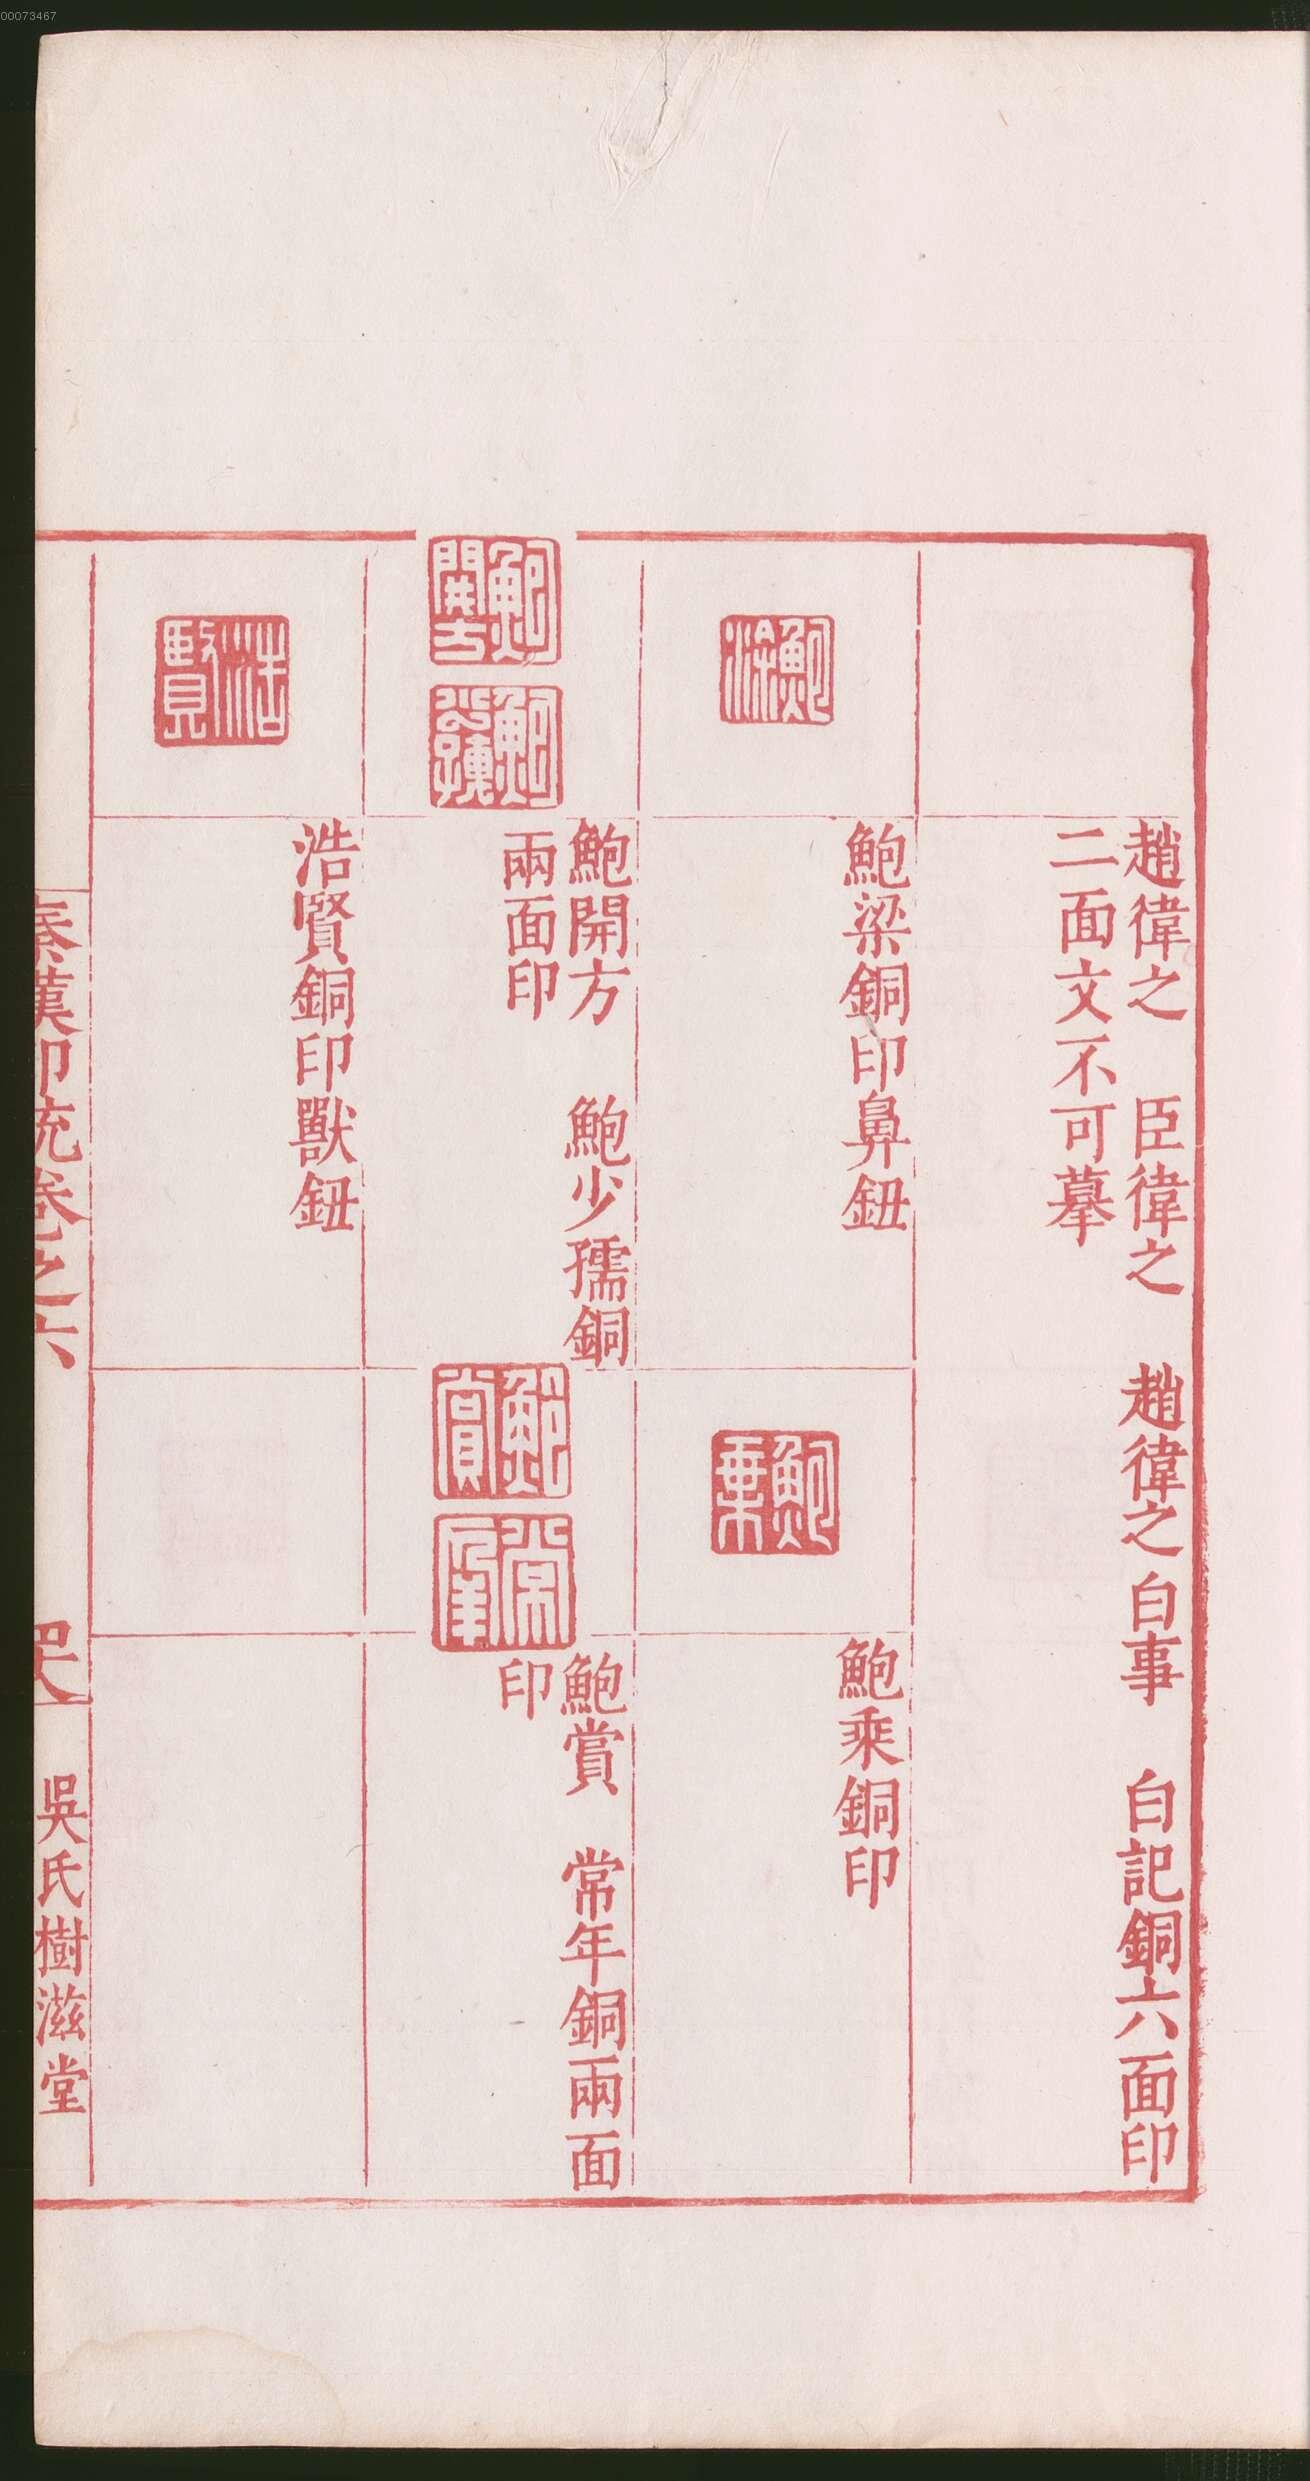 00073467
趙徫之　臣徫之　趙徫之白事　白記銅六面印
二面文不可摹
鮑梁
鮑梁銅印鼻鈕
鮑乘
鮑乘銅印
鮑開方
鮑少孺
鮑開方　鮑少孺銅
兩面印
鮑賞
常年
鮑賞　常年銅兩面
印
浩賢
浩賢銅印獸鈕
秦漢印統卷之六
吳氏樹滋堂